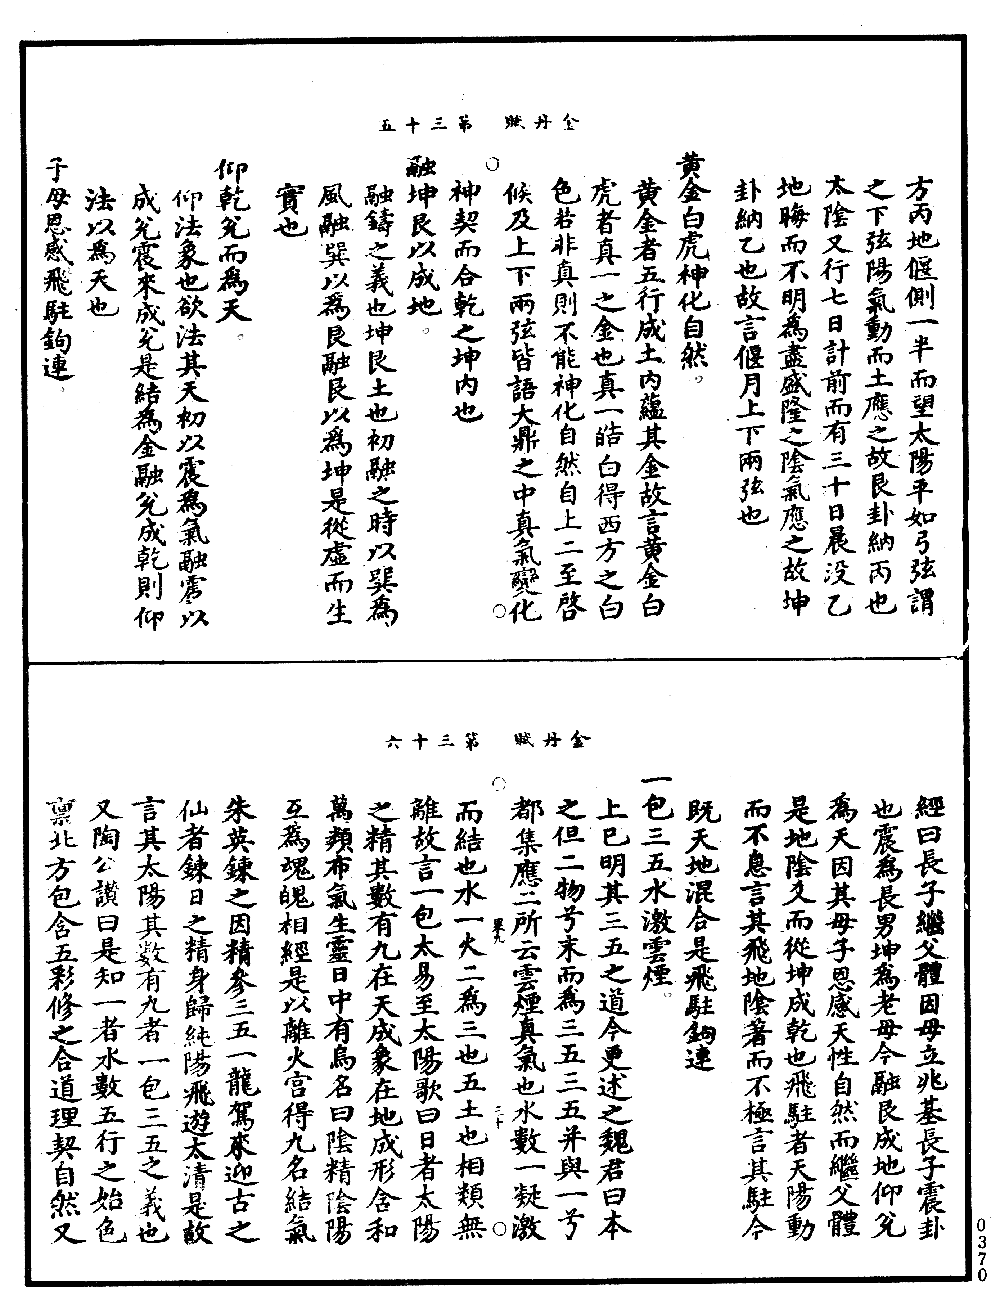 金丹賦　第三十五
方丙地偃側一半而望太陽平如弓弦謂
之下弦陽氣動而土應之故艮卦納丙也
太陰又行七日計前而有三十日晨没乙
地晦而不明為盡盛隆之陰氣應之故坤
卦納乙也故言偃月上下兩弦也
黄金白虎神化自然。
黄金者五行成土内蘊其金故言黄金白
虎者真一之金也真一皓白得西方之白
色若非真則不能神化自然自上二至啓
候及上下兩弦皆語大鼎之中真氣變化
神契而合乾之坤内也
融坤艮以成地。
融鑄之義也坤艮土也初融之時以巽為
風融巽以為艮融艮以為坤是從虚而生
實也
仰乾兌而為天。
仰法象也欲法其天初以震為氣融震以
成兌震來成兌是結為金融兌成乾則仰
法以為天也
子母恩感飛駐鉤連。
金丹賦　第三十六
經曰長子繼父體因母立兆基長子震卦
也震為長男坤為老母今融艮成地仰兌
為天因其母子恩感天性自然而繼父體
是地陰久而從坤成乾也飛駐者天陽動
而不息言其飛地陰著而不極言其駐今
既天地混合是飛駐鉤連
一包三五水激雲煙。
上巳明其三五之道今更述之魏君曰本
之但二物兮末而為三五三五并與一兮
都集應二所云雲煙真氣也水數一凝激
而結也水一火二為三也五土也相類無
離故言一包太易至太陽歌曰日者太陽
之精其數有九在天成象在地成形含和
萬類布氣生靈日中有烏名曰陰精陰陽
互為魂魄相經是以離火宫得九名結氣
朱英鍊之因精參三五一龍駕來迎古之
仙者鍊日之精身歸純陽飛遊太清是故
言其太陽其數有九者一包三五之義也
又陶公讚曰是知一者水數五行之始色
禀北方包含五彩修之合道理契自然又
巻九
二十
0370